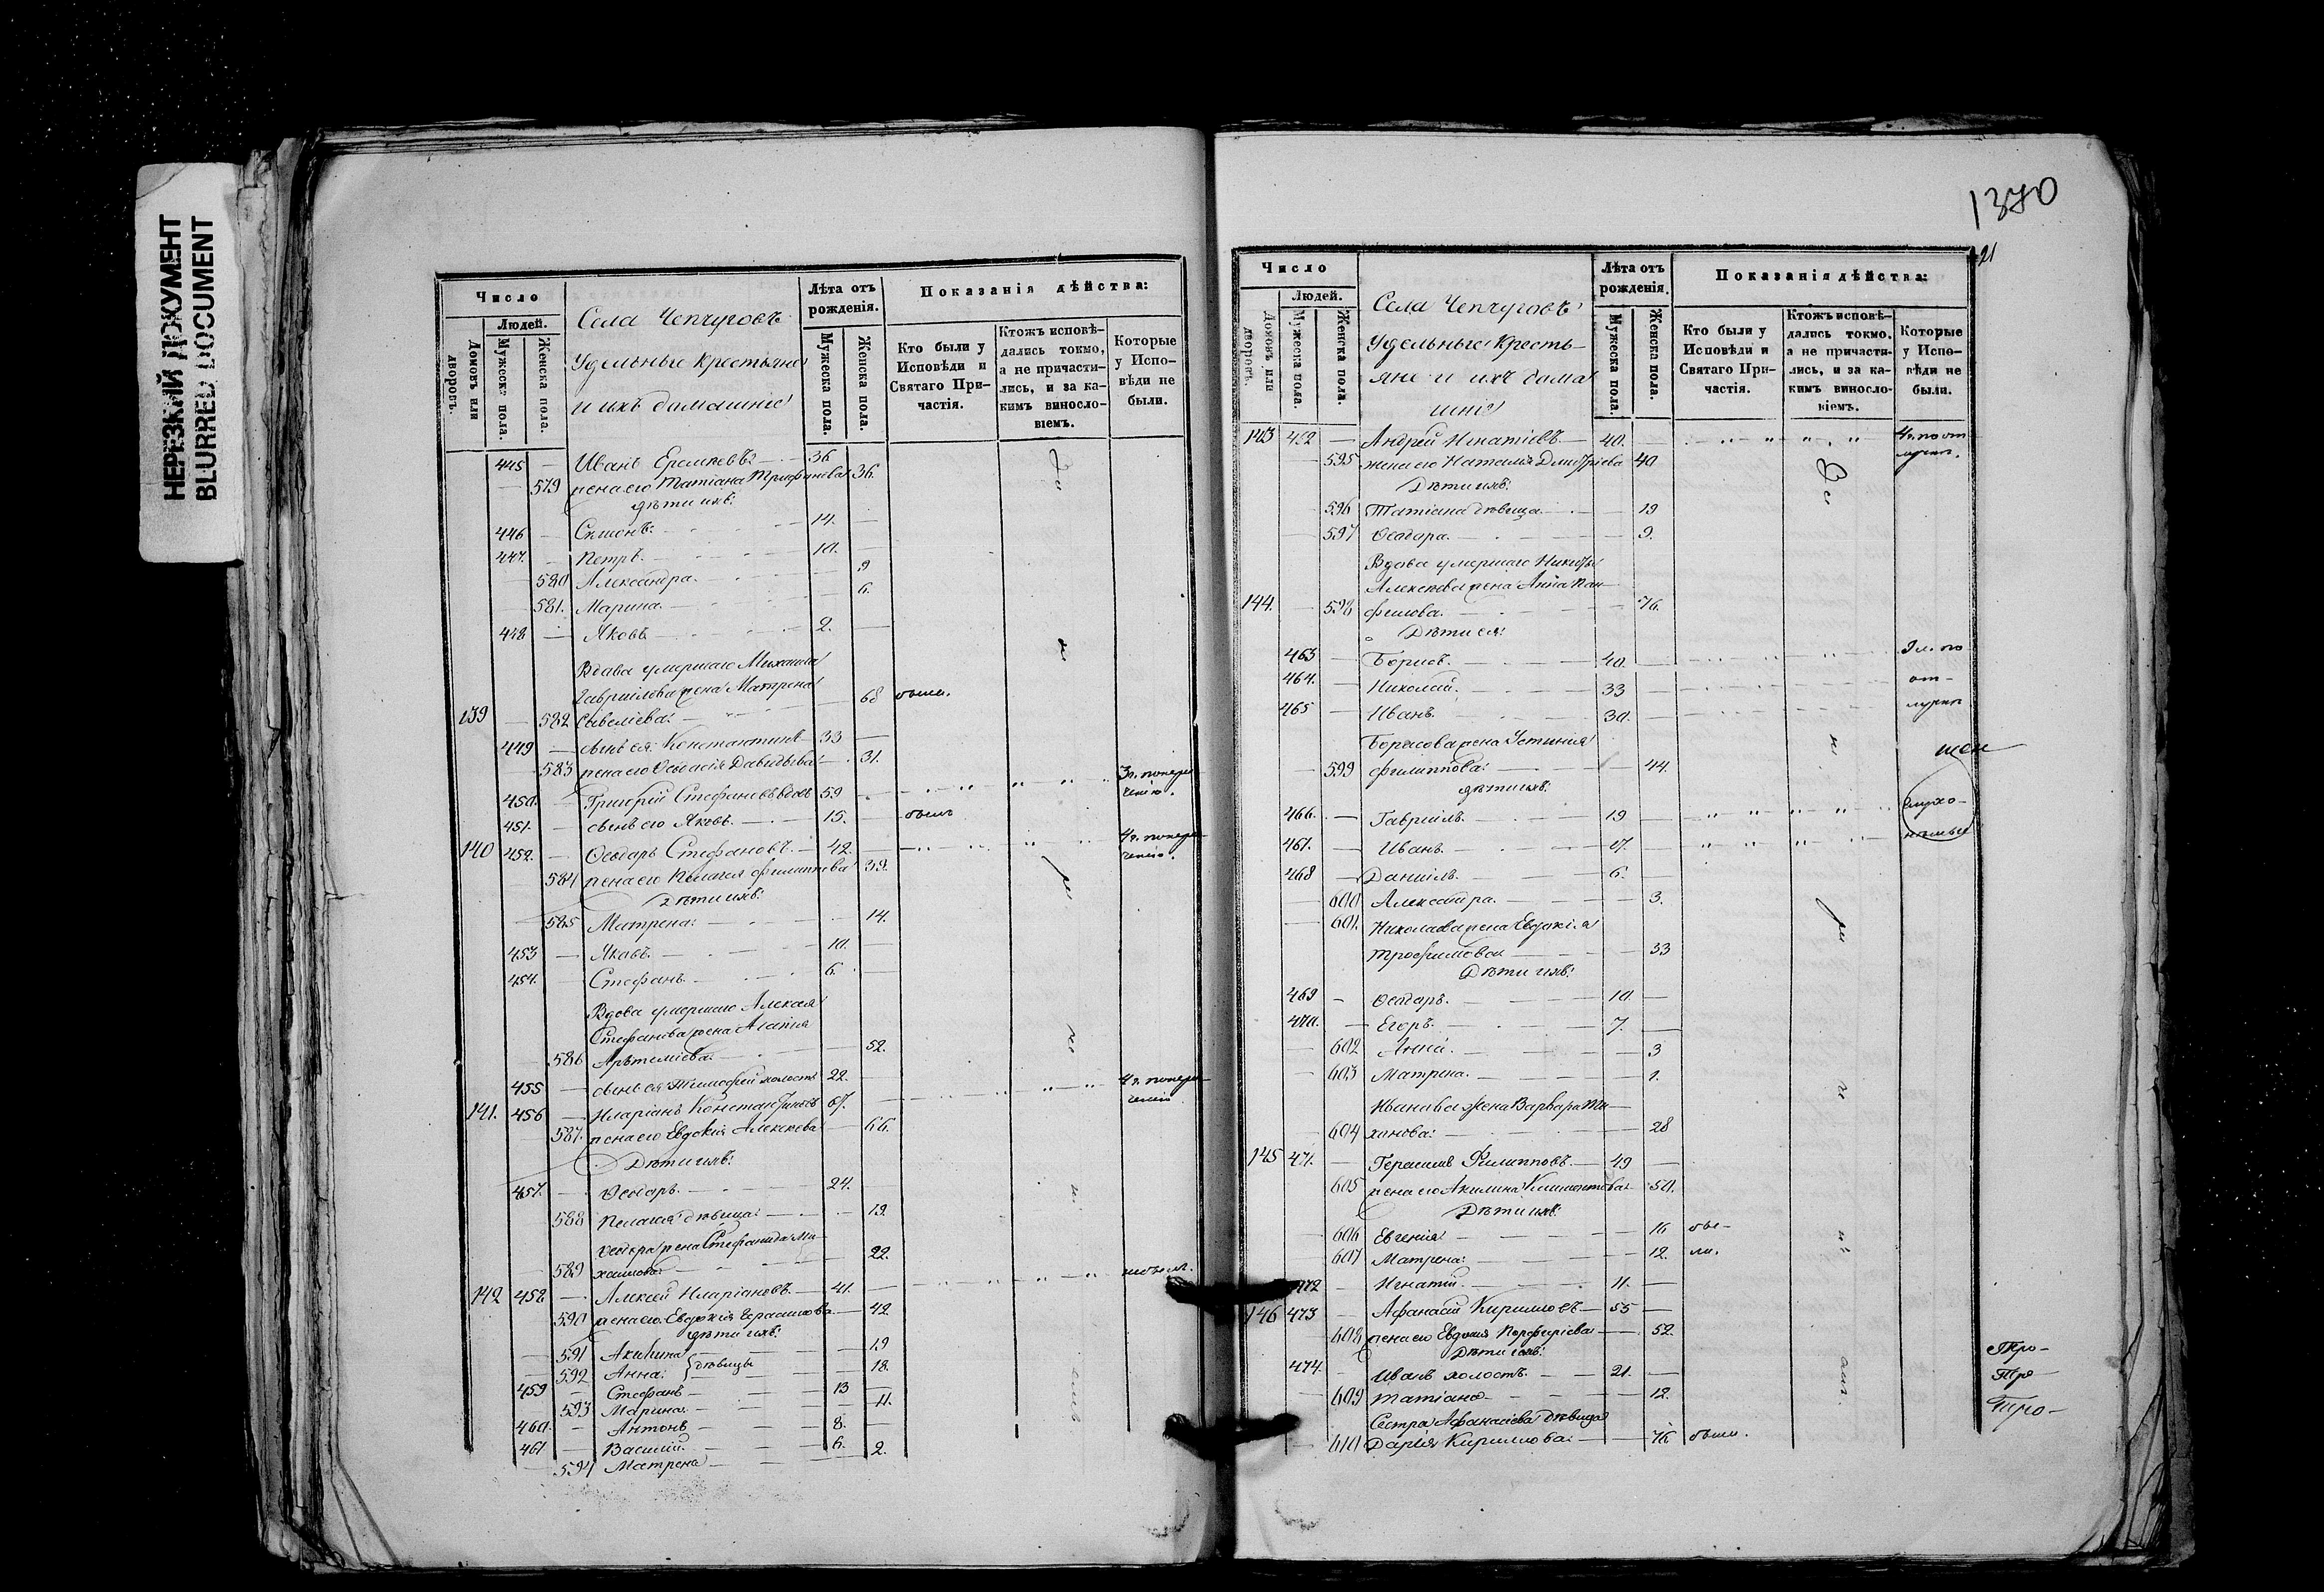 НЕРЕЗКИЙ ДОКУМЕНТ
BLURRED DOCUMENT
Число
Людей.
Домовъ или дворовъ.
Мужеска пола.
Женска пола.
Села Чепчуговъ
Удельные крестьяне
и ихъ домашніе
Лѣта отъ рожденія.
Мужеска пола.
Женска пола.
Показанія дѣйства:
Кто были у Исповѣди и Святаго Причастія.
Ктожъ исповѣдались токмо, а не причастились, и за какимъ винословіемъ.
Которые у Исповѣди не были.
445 — Иванъ 36
— 579 жена его Татіана Трифонова 36.
дѣти ихъ:
446 — Симонъ. 14. —
447. — Петръ. 10. —
580 Александра. 9
581. Марина. 6.
448 — Яковъ 2. —
Вдова умершаго Михаила
Гавріилова жена Матрена
139 — 582 Савеліева: — 68 были.
449 — сынъ ея Константинъ 33 —
583 жена его Давидова: 31.
450. — Григорій Стефановъ вдовъ 59
451. — сынъ его Яковъ. 15. были
140 452. — Ѳеодоръ Стефановъ. 42. —
584 жена его Пелагея Филиппова 39.
Дѣти ихъ:
585 Матрена: 14.
453 — Яковъ. 10. —
454. — Стефанъ. 6. —
Вдова умершаго Алексея
Стефанова жена Агапія
586 Артеміева: 52.
455 — сынъ ея Тимофей холостъ 22.
141. 456 — Иларіонъ Константиновъ 67.
587. жена его Евдокія Алексеева 66.
Дѣти ихъ:
457. — Ѳеодоръ. 24.
588 Пелагія дѣвица: 19.
Ѳеодора жена Стефанида Ми-
589 хаилова: 22.
142 458 — Алексей Иларіоновъ. 41. —
590 жена его Евдокія Герасимова 42.
дѣти ихъ:
591 Акилина 19
592 Анна: } дѣвицы 18.
459 — Стефанъ 13
593 Марина. 11.
460. — Антонъ 8. —
461 — Василій. 6.
594 Матрена 2.
1370
21
Число
Людей.
Домовъ или дворовъ.
Мужеска пола.
Женска пола.
Села Чепчуговъ
Удельные кресть-
яне и ихъ дома
шніе
Лѣта отъ рожденія.
Мужеска пола.
Женска пола.
Показанія дѣйства:
Кто были у Исповѣди и Святаго Причастія.
Ктожъ исповѣдались токмо, а не причастились, и за какимъ винословіемъ.
Которые у Исповѣди не были.
143 462 — Андрей Игнатіевъ 40.
595 жена его Наталія Дмитріева 40
Дѣти ихъ:
596 Татіана дѣвица 19
597 Ѳеодора. 9.
Вдова умершаго Никиты
Алексеева жена Анна Пан-
144. — 598 филова. 76.
Дѣти ея:
463 — Борисъ. 40.
464. — Николай. 33
465 — Иванъ. 30.
Борисова жена Устинія
599 Филиппова: 44.
дѣти ихъ:
466. — Гавріилъ. 19
467. — Иванъ.
468 — Даніилъ. 6.
600 Александра. 3.
601. Николаева жена Евдокія
Трофимова 33
Дѣти ихъ:
469 — Ѳеодоръ. 10. —
470. — Егоръ. 7. —
602 Анна. 3
603 Матрена. 1.
Иванова жена Варвара Ти-
604 ханова: 28
145 471. — Герасимъ Филипповъ. 49 —
605 жена его Акилина Климентова 50.
Дѣти ихъ:
606 Евгенія 16 бы-
607 Матрена: 12. ли.
472 — Игнатій. 11. —
146 473 — Афанасій Кирилловъ 55 —
608 жена его Евдокія Порфиріева 52.
Дѣти ихъ:
474. — Иванъ холостъ. 21. —
609 Татіана 12.
Сестра Афанасіева дѣвица
610 Дарія Кириллова: 76 были.
Про-
Про-
Про-